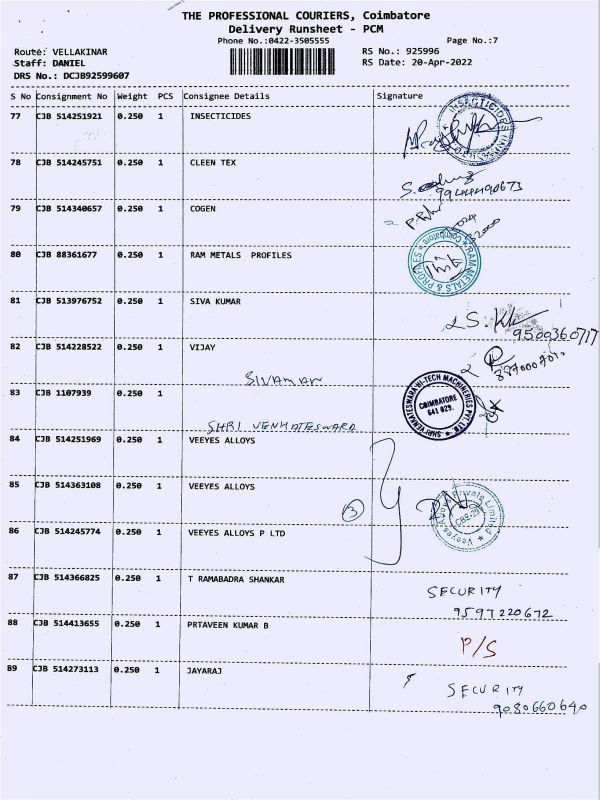 THE PROFESSIONAL COURIERS, Coimbatore
Delivery Runsheet - PCM
Phone No.:0422-3505555
Page No.:7
Route: VELLAKINAR
RS No.: 925996
Staff: DANIEL
RS Date: 20-Apr-2022
DRS No.: DCJB92599607
S No Consignment No Weight PCS Consignee Details Signature
77 CJB 514251921 0.250 1 INSECTICIDES
78 CJB 514245751 0.250 1 CLEEN TEX
9944490673
79 CJB 514340657 0.250 1 COGEN
80 CJB 88361677 0.250 1 RAM METALS PROFILES
RAM METALS & PROFILES Coimbatore
81 CJB 513976752 0.250 1 SIVA KUMAR
9500360717
82 CJB 514228522 0.250 1 VIJAY
SIVAMAN
83 CJB 1107939 0.250 1
SHRI VENKATESWARA HI-TECH MACHINERIES PVT. LTD.
COIMBATORE
641 029.
SHRI VENKATESWARA
84 CJB 514251969 0.250 1 VEEYES ALLOYS
85 CJB 514363108 0.250 1 VEEYES ALLOYS
3
Veeyes Alloys Private Limited
86 CJB 514245774 0.250 1 VEEYES ALLOYS P LTD
87 CJB 514366825 0.250 1 T RAMABADRA SHANKAR
SECURITY
9597220672
88 CJB 514413655 0.250 1 PRTAVEEN KUMAR B
P/S
89 CJB 514273113 0.250 1 JAYARAJ
SECURITY
9080660640